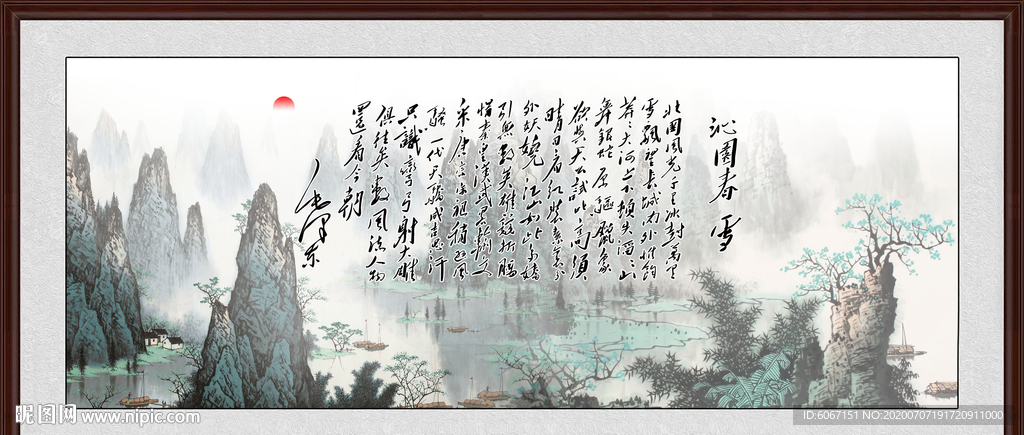 沁園春 雪
北国風光千里冰封萬里
雪飄望长城内外惟餘
莽莽大河上下頓失滔滔山
舞銀蛇原驅臘象
欲与天公試比高須
晴日看红装素裹分
外妖嬈江山如此多嬌
引無數英雄競折腰
惜秦皇漢武略輸文
采唐宗宋祖稍逊風
騷一代天驕成吉思汗
只識彎弓射大雕
俱往矣數風流人物
還看今朝
毛澤東
昵图网 www.nipic.com
ID:6067151 NO:20200707191720911000